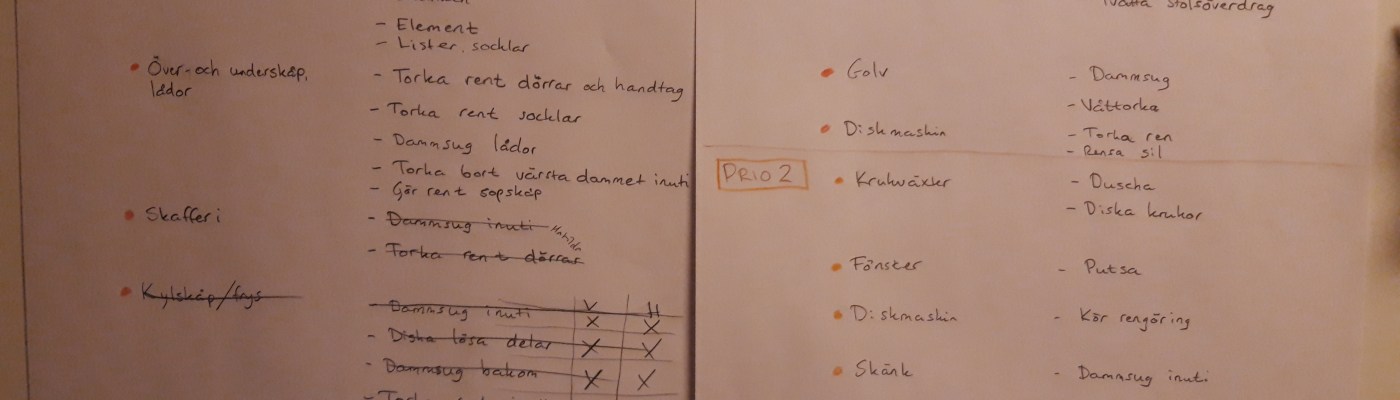 - Element
- Lister, socklar
Över- och underskåp,
lådor
- Torka rent dörrar och handtag
- Torka rent socklar
- Dammsug lådor
- Torka bort värsta dammet inuti
- Gör rent sopskåp
Skafferi
- Dammsug inuti
Matilda
- Torka rent dörrar
Kylskåp/frys
V H
- Dammsug inuti X X
- Diska lösa delar X X
- Dammsug bakom X X
Tvätta stolsöverdrag
Golv
- Dammsug
- Våttorka
Diskmaskin
- Torka ren
- Rensa sil
PRIO 2
Krukväxter
- Duscha
- Diska krukor
Fönster
- Putsa
Diskmaskin
- Kör rengöring
Skänk
- Dammsug inuti